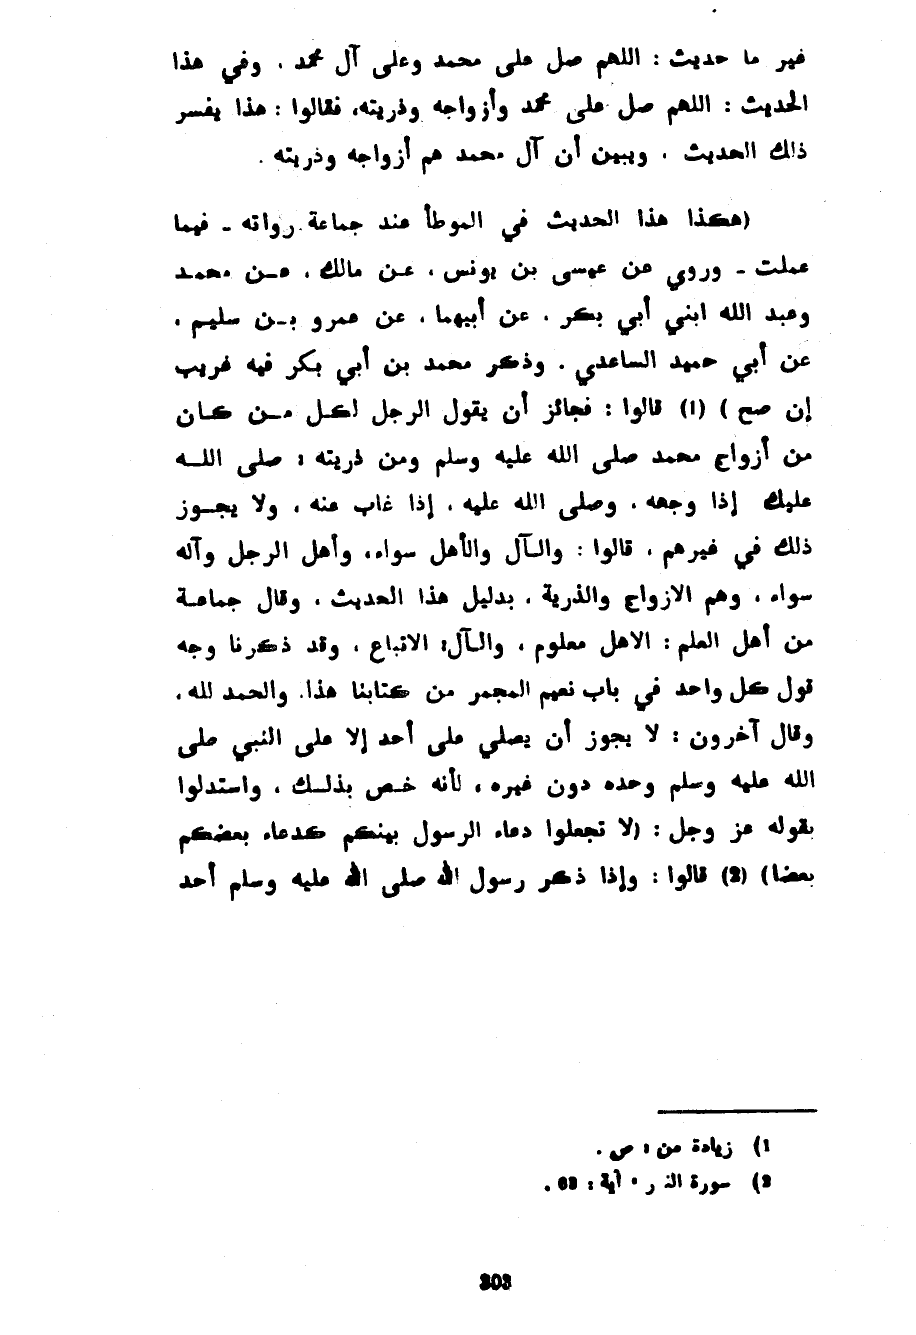 غير ما حديث : اللهم صل على محمد وعلى آل محمد ، وفي هذا
الحديث : اللهم صل على محمد وأزواجه وذريته، فقالوا : هذا يفسر
ذلك الحديث ، ويبين أن آل محمد هم أزواجه وذريته .
(هكذا هذا الحديث في الموطأ عند جماعة رواته - فيما
عملت - وروي عن عيسى بن يونس ، عن مالك ، عن محمد
وعبد الله ابني أبي بكر ، عن أبيهما ، عن عمرو بن سليم ،
عن أبي حميد الساعدي . وذكر محمد بن أبي بكر فيه غريب
إن صح ) (1) قالوا : فجائز أن يقول الرجل لكل من كان
من أزواج محمد صلى الله عليه وسلم ومن ذريته : صلى الله
عليك إذا وجهه ، وصلى الله عليه ، إذا غاب عنه ، ولا يجوز
ذلك في غيرهم ، قالوا : والآل والأهل سواء، وأهل الرجل وآله
سواء ، وهم الازواج والذرية ، بدليل هذا الحديث ، وقال جماعة
من أهل العلم : الاهل معلوم ، والآل: الاتباع ، وقد ذكرنا وجه
قول كل واحد في باب نعيم المجمر من كتابنا هذا. والحمد لله ،
وقال آخرون : لا يجوز أن يصلي على أحد إلا على النبي صلى
الله عليه وسلم وحده دون غيره ، لأنه خص بذلك ، واستدلوا
بقوله عز وجل : (لا تجعلوا دعاء الرسول بينكم كدعاء بعضكم
بعضا) (2) قالوا : وإذا ذكر رسول الله صلى الله عليه وسلم أحد
1) زيادة من : ص .
2) سورة النـ ر ، آية : 63 .
303